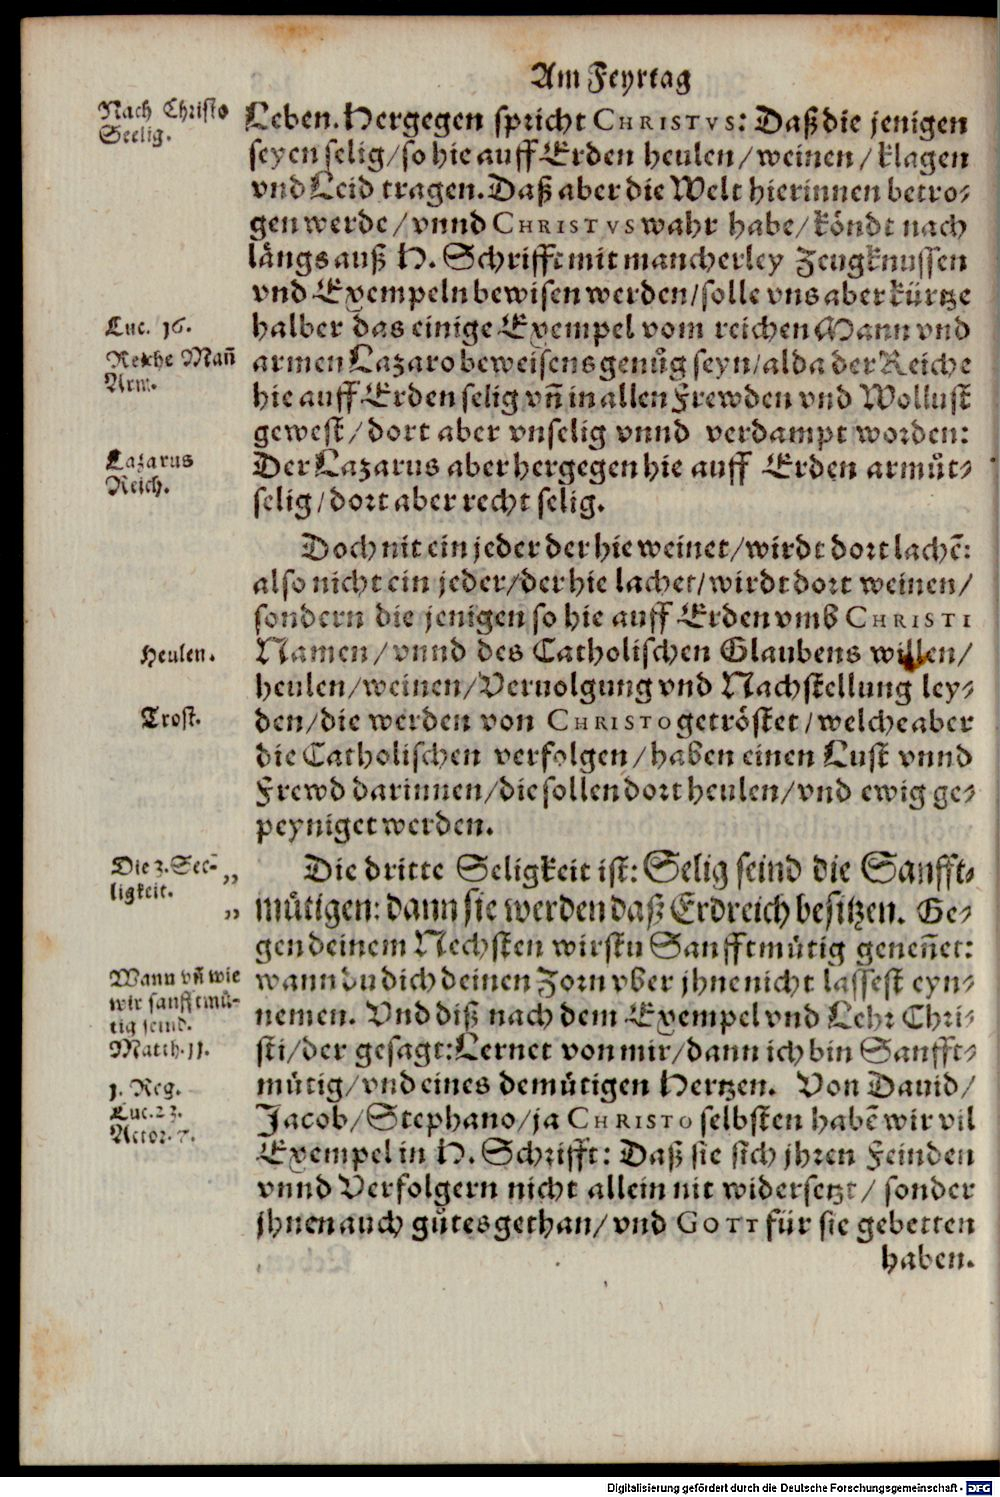 Am Feyrtag
Nach Christo
Seelig.
Leben. Hergegen spricht CHRISTVS: Daß die jenigen
seyen selig/ so hie auff Erden heulen/ weinen/ klagen
vnd Leid tragen. Daß aber die Welt hierinnen betro-
gen werde/ vnnd CHRISTVS wahr habe/ köndt nach
längs auß H. Schrifft mit mancherley Zeugknussen
vnd Exempeln bewisen werden/ solle vns aber kürtze
Luc. 16.
halber das einige Exempel vom reichen Mann vnd
Reiche Mañ
Arm.
armen Lazaro beweisens genůg seyn/ alda der Reiche
hie auff Erden selig vñ in allen Frewden vnd Wollust
gewest/ dort aber vnselig vnnd verdampt worden:
Lazarus
Reich.
Der Lazarus aber hergegen hie auff Erden armůt-
selig/ dort aber recht selig.
Doch nit ein jeder der hie weinet/ wirdt dort lachẽ:
also nicht ein jeder/ der hie lachet/ wirdt dort weinen/
sondern die jenigen so hie auff Erden vmb CHRISTI
Heulen.
Namen/ vnnd des Catholischen Glaubens willen/
heulen/ weinen/ Veruolgung vnd Nachstellung ley-
Trost.
den/ die werden von CHRISTO getröstet/ welche aber
die Catholischen verfolgen/ haben einen Lust vnnd
Frewd darinnen/ die sollen dort heulen/ vnd ewig ge-
peyniget werden.
Die 3. See-
ligkeit.
„ Die dritte Seligkeit ist: Selig seind die Sanfft-
„ mütigen: dann sie werden daß Erdreich besitzen. Ge-
gen deinem Nechsten wirstu Sanfftmütig geneñet:
Wann vñ wie
wir sanfftmü-
tig seind.
Matth. 11.
wann du dich deinen Zorn vber jhne nicht lassest eyn-
nemen. Vnd diß nach dem Exempel vnd Lehr Chri-
sti/ der gesagt: Lernet von mir/ dann ich bin Sanfft-
1. Reg.
Luc. 23.
Actor. 7.
mütig/ vnd eines demütigen Hertzen. Von Dauid/
Jacob/ Stephano/ ja CHRISTO selbsten habẽ wir vil
Exempel in H. Schrifft: Daß sie sich jhren Feinden
vnnd Verfolgern nicht allein nit widersetzt/ sonder
jhnen auch gůtes gethan/ vnd GOTT für sie gebetten
haben.
Digitalisierung gefördert durch die Deutsche Forschungsgemeinschaft - DFG